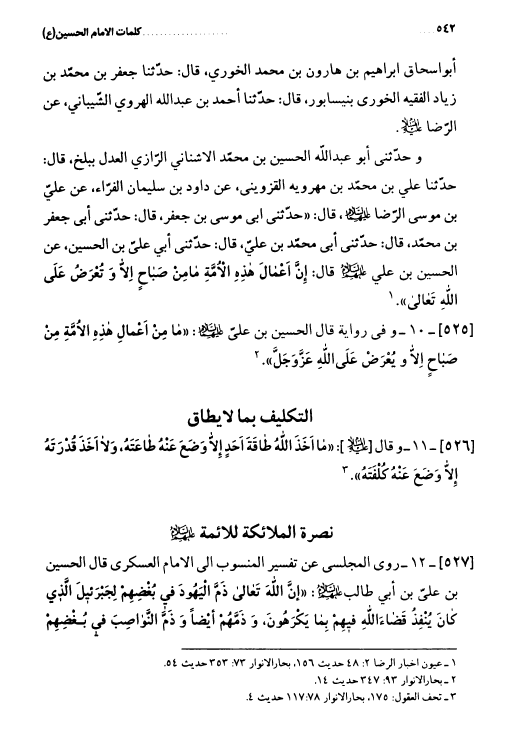 ٥٤٢ .... كلمات الامام الحسين(ع)
أبواسحاق ابراهيم بن هارون بن محمد الخوري، قال: حدّثنا جعفر بن محمد بن
زياد الفقيه الخورى بنيسابور، قال: حدّثنا أحمد بن عبدالله الهروي الشّيباني، عن
الرّضا عليه‌السلام.
و حدّثنى أبو عبداللّه الحسين بن محمّد الاشناني الرّازي العدل ببلخ، قال:
حدّثنا علي بن محمد بن مهرويه القزويني، عن داود بن سليمان الفرّاء، عن عليّ
بن موسى الرّضا عليه‌السلام، قال: «حدّثنى ابى موسى بن جعفر، قال: حدّثنى أبى جعفر
بن محمّد، قال: حدّثنى أبى محمّد بن عليّ، قال: حدّثنى أبي علىّ بن الحسين، عن
الحسين بن علي عليه‌السلام قال: إِنَّ أَعْمٰالَ هٰذِهِ الْأُمَّةِ مٰامِنْ صَبٰاحٍ اِلاّٰ وَ تُعْرَضُ عَلَى
اللّهِ تَعٰالىٰ».١
[٥٢٥] ـ ١٠ ـ و فى رواية قال الحسين بن علىّ عليه‌السلام: «مٰا مِنْ أَعْمٰالِ هٰذِهِ الاُمَّةِ مِنْ
صَبٰاحٍ اِلاّٰ و يُعْرَضْ عَلَى اللّهِ عَزَّوَجَلَّ».٢
التكليف بما لايطاق
[٥٢٦] ـ ١١ ـ و قال [عليه‌السلام]: «مٰا أَخَذَ اللّهُ طٰاقَةَ أَحَدٍ اِلاّٰ وَضَعَ عَنْهُ طٰاعَتَهُ، وَلاٰ أَخَذَ قُدْرَتَهُ
اِلاّٰ وَضَعَ عَنْهُ كُلْفَتَهُ».٣
نصرة الملائكة للائمة عليهم‌السلام
[٥٢٧] ـ ١٢ ـ روى المجلسي عن تفسير المنسوب الى الامام العسكرى قال الحسين
بن علىّ بن أبي طالب عليه‌السلام: «إنَّ اللّهَ تَعٰالىٰ ذَمَّ الْيَهُودَ في بُغْضِهِمْ لِجَبْرَئيلَ الَّذي
كٰانَ يُنْفِذُ قَضٰاءَاللّهِ فيهِمْ بِمٰا يَكْرَهُونَ، وَ ذَمَّهُمْ أيْضاً وَ ذَمَّ النَّوٰاصِبَ في بُغْضِهِمْ
١ ـ عيون اخبار الرضا ٢: ٤٨ حديث ١٥٦، بحارالانوار ٧٣: ٣٥٣ حديث ٥٤.
٢ ـ بحارالانوار ٩٣: ٣٤٧ حديث ١٤.
٣ ـ تحف العقول: ١٧٥، بحارالانوار ١١٧:٧٨ حديث ٤.